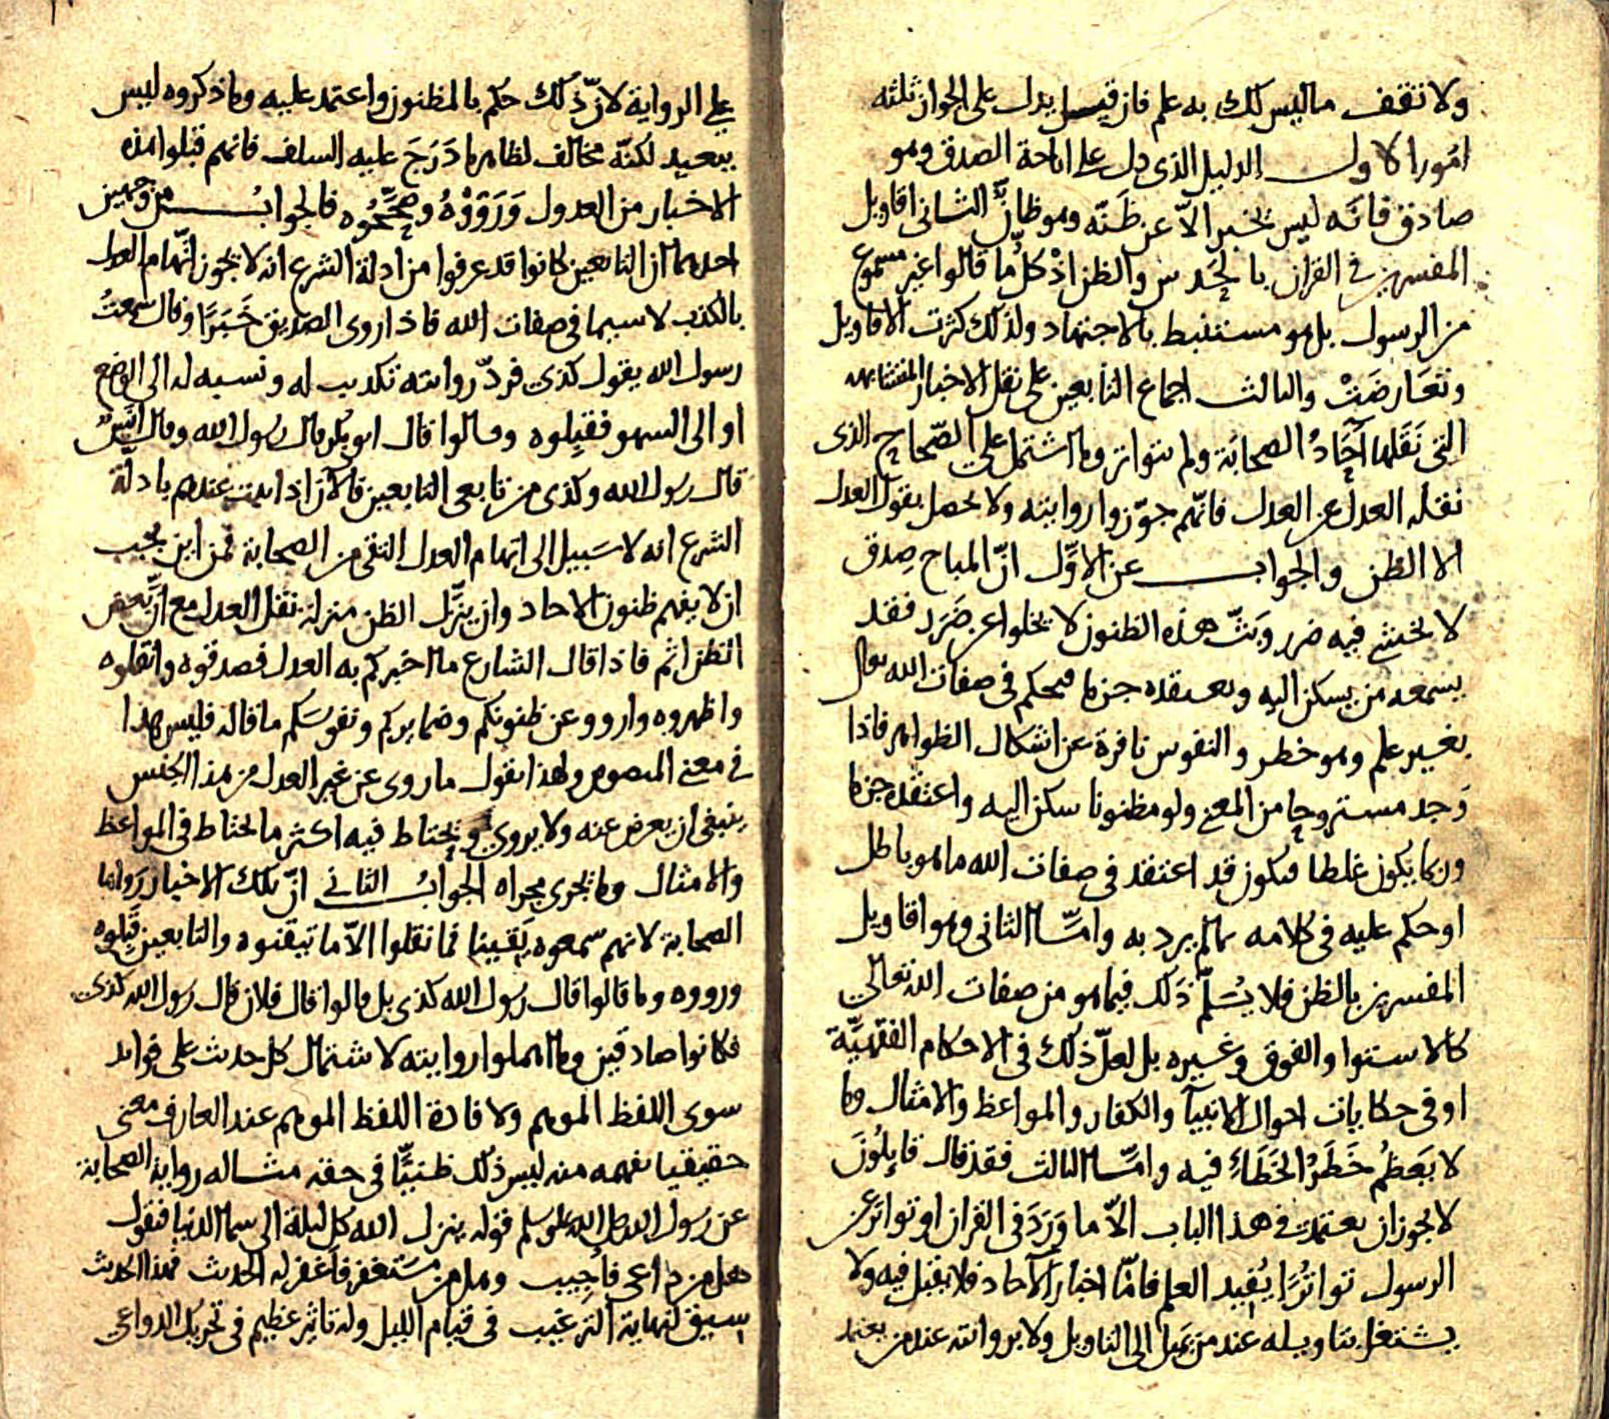 ولا تقف ما ليس لك به علم فان قيل يدل على الجواز ثلثه
امور الاول الدليل الذى دل على اباحة الصدق وهو
صادق فانه ليس يخبر الا عن ظنه وهو ظانّ الثانى اقاويل
المفسرين فى القران بالحدس والظن اذ كل ما قالوا غير مسموع
من الرسول بل هو مستنبط بالاجتهاد ولذلك كثرت الاقاويل
وتعارضت والثالث اجماع التابعين على نقل الاخبار المتشابهه
التى نقلها آحاد الصحابة ولم تتواتر وما اشتمل على الصحاح الذى
نقله العدل عن العدل فانهم جوزوا روايته ولا يحصل بقول العدل
الا الظن والجواب عن الاول انّ المباح صدق
لا يخشى فيه ضرر وبثّ هذه الظنون لا يخلوا عن ضرر فقد
يسمعه من يسكن اليه ويعتقده جزما فيحكم فى صفات الله تعالى
بغير علم وهو خطر والنفوس نافرة عن اشكال الظواهر فاذا
وجد مستروحا من المعنى ولو مظنونا سكن اليه واعتقده جزما
وربما يكون غلطا فيكون قد اعتقد فى صفات الله ما هو باطل
او حكم عليه فى كلامه بما لم يرد به وامّا الثانى وهو اقاويل
المفسرين بالظن فلا يسلّم ذلك فيما هو من صفات الله تعالى
كالاستوا والفوق وغيره بل لعلّ ذلك فى الاحكام الفقهيّة
او فى حكايات احوال الانبيآ والكفار والمواعظ والامثال وما
لا يعظم خطر الخطاء فيه وامّا الثالث فقد قال قايلون
لا يجوز ان يعتمد فى هذا الباب الاّ ما ورد فى القران او تواتر عن
الرسول تواترًا يفيد العلم فامّا اخبار الآحاد فلا يقبل فيه ولا
يشتغل بتاويله عند من يميل الى التاويل ولا بروايته عند من يعتمد
على الرواية لانّ ذلك حكم بالمظنون واعتمد عليه وما ذكروه ليس
ببعيد لكنّه مخالف لظاهر ما درج عليه السلف فانهم قبلوا هذه
الاخبار من العدول ورووه وصححوه فالجواب من وجهين
احدهما ان التابعين كانوا قد عرفوا من ادلة الشرع انه لا يجوز اتهام العدل
بالكذب لا سيما فى صفات الله فاذا روى الصديق خبرًا وقال سمعت
رسول الله يقول كذى فردّ روايته تكذيب له ونسبه له الى الوضع
او الى السهو فقبلوه وقالوا قال ابو بكر قال رسول الله وقال انس
قال رسول الله وكذى من تابعى التابعين فالآن اذا ثبت عندهم بادلّة
الشرع انه لا سبيل الى اتهام العدل التقى من الصحابة فمن اين يجب
ان لا يفهم ظنون الاحاد وان ينزّل الظن منزلة نقل العدل مع انّ بعض
الظن اثم فاذا قال الشارع ما اخبركم به العدل فصدقوه وانقلوه
واظهروه وارووعن ظنونكم وضمايركم ونفوسكم ما قاله فليس هذا
فى معنى المنصوص ولهذا نقول ما روى عن غير العدل من هذا الجنس
ينبغى ان يعرض عنه ولا يروى ويحتاط فيه اكثر ما يحتاط فى المواعظ
والامثال وما يجرى مجراه الجواب الثانى انّ تلك الاخبار رواها
الصحابة لانهم سمعوه يقينا فما نقلوا الاّ ما تيقنوه والتابعين قبلوه
ورووه وما قالوا قال رسول الله كذى بل قالوا قال فلان قال رسول الله كذى
فكانوا صادقين وما اهملوا روايته لاشتمال كل حديث على فوايد
سوى اللفظ الموهم ولافادة اللفظ الموهم عند العارف معنى
حقيقيا يفهمه منه ليس ذلك ظنيًّا فى حقه مثاله رواية الصحابة
عن رسول الله صلى الله عليه وسلم قوله ينزل الله كل ليلة الى سما الدنيا فيقول
هل من داعى فأجيب وهل من مستغفر فاغفر له الحديث فهذا الحديث
سيق لنهاية الترغيب فى قيام الليل وله تاثير عظيم فى تحريك الدواعى